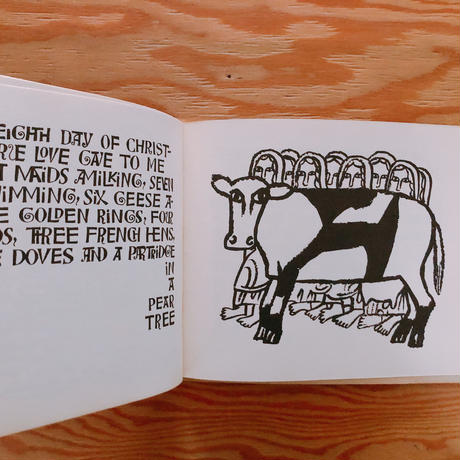 EIGHTH DAY OF CHRIST-
TRUE LOVE GAVE TO ME
MAIDS AMILKING, SEVEN
SIX GEESE A-
GOLDEN RINGS, FOUR
THREE FRENCH HENS,
DOVES AND A PARTRIDGE
IN
A
PEAR
TREE